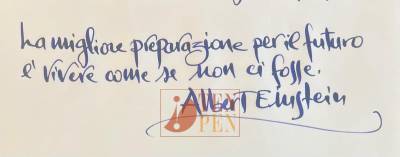 La migliore preparazione per il futuro
è vivere come se non ci fosse.
Albert Einstein
TEN
PEN